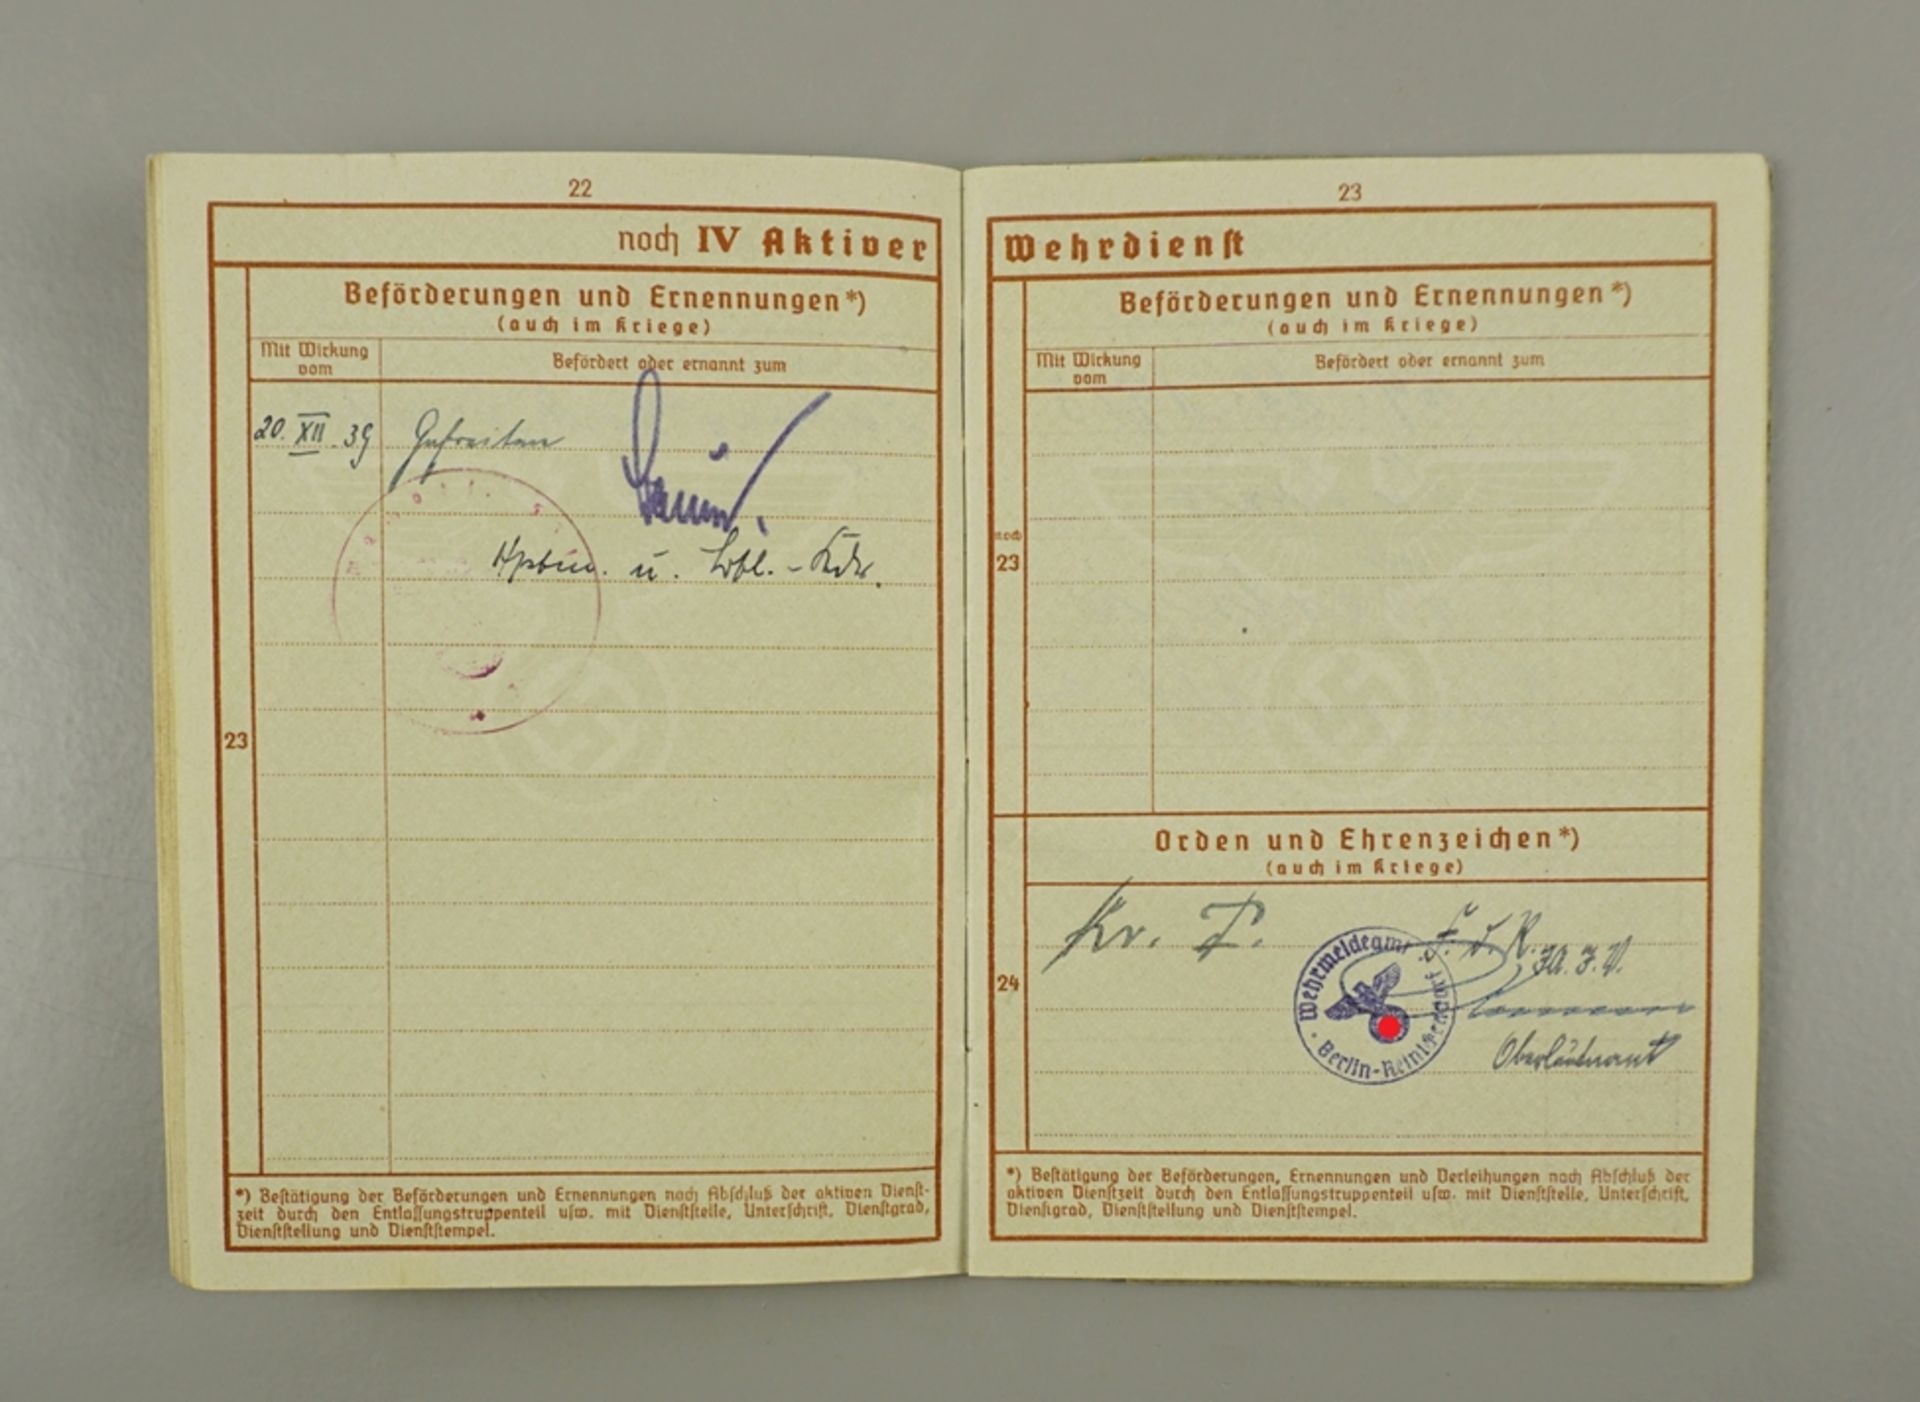 22
noch IV Aktiver
Beförderungen und Ernennungen*)
(auch im Kriege)
Mit Wirkung
vom
Befördert oder ernannt zum
20. XII. 39 Gefreiten
Hptm. u. -Kdr.
23
*) Bestätigung der Beförderungen und Ernennungen nach Abschluß der aktiven Dienst-
zeit durch den Entlassungstruppenteil usw. mit Dienststelle, Unterschrift, Dienstgrad,
Dienststellung und Dienststempel.
23
Wehrdienst
Beförderungen und Ernennungen*)
(auch im Kriege)
Mit Wirkung
vom
Befördert oder ernannt zum
noch
23
Orden und Ehrenzeichen*)
(auch im Kriege)
Kr. F. d. R.
24
Wehrmeldeamt
Berlin-Reinickendorf
Oberleutnant
*) Bestätigung der Beförderungen, Ernennungen und Verleihungen nach Abschluß der
aktiven Dienstzeit durch den Entlassungstruppenteil usw. mit Dienststelle, Unterschrift,
Dienstgrad, Dienststellung und Dienststempel.